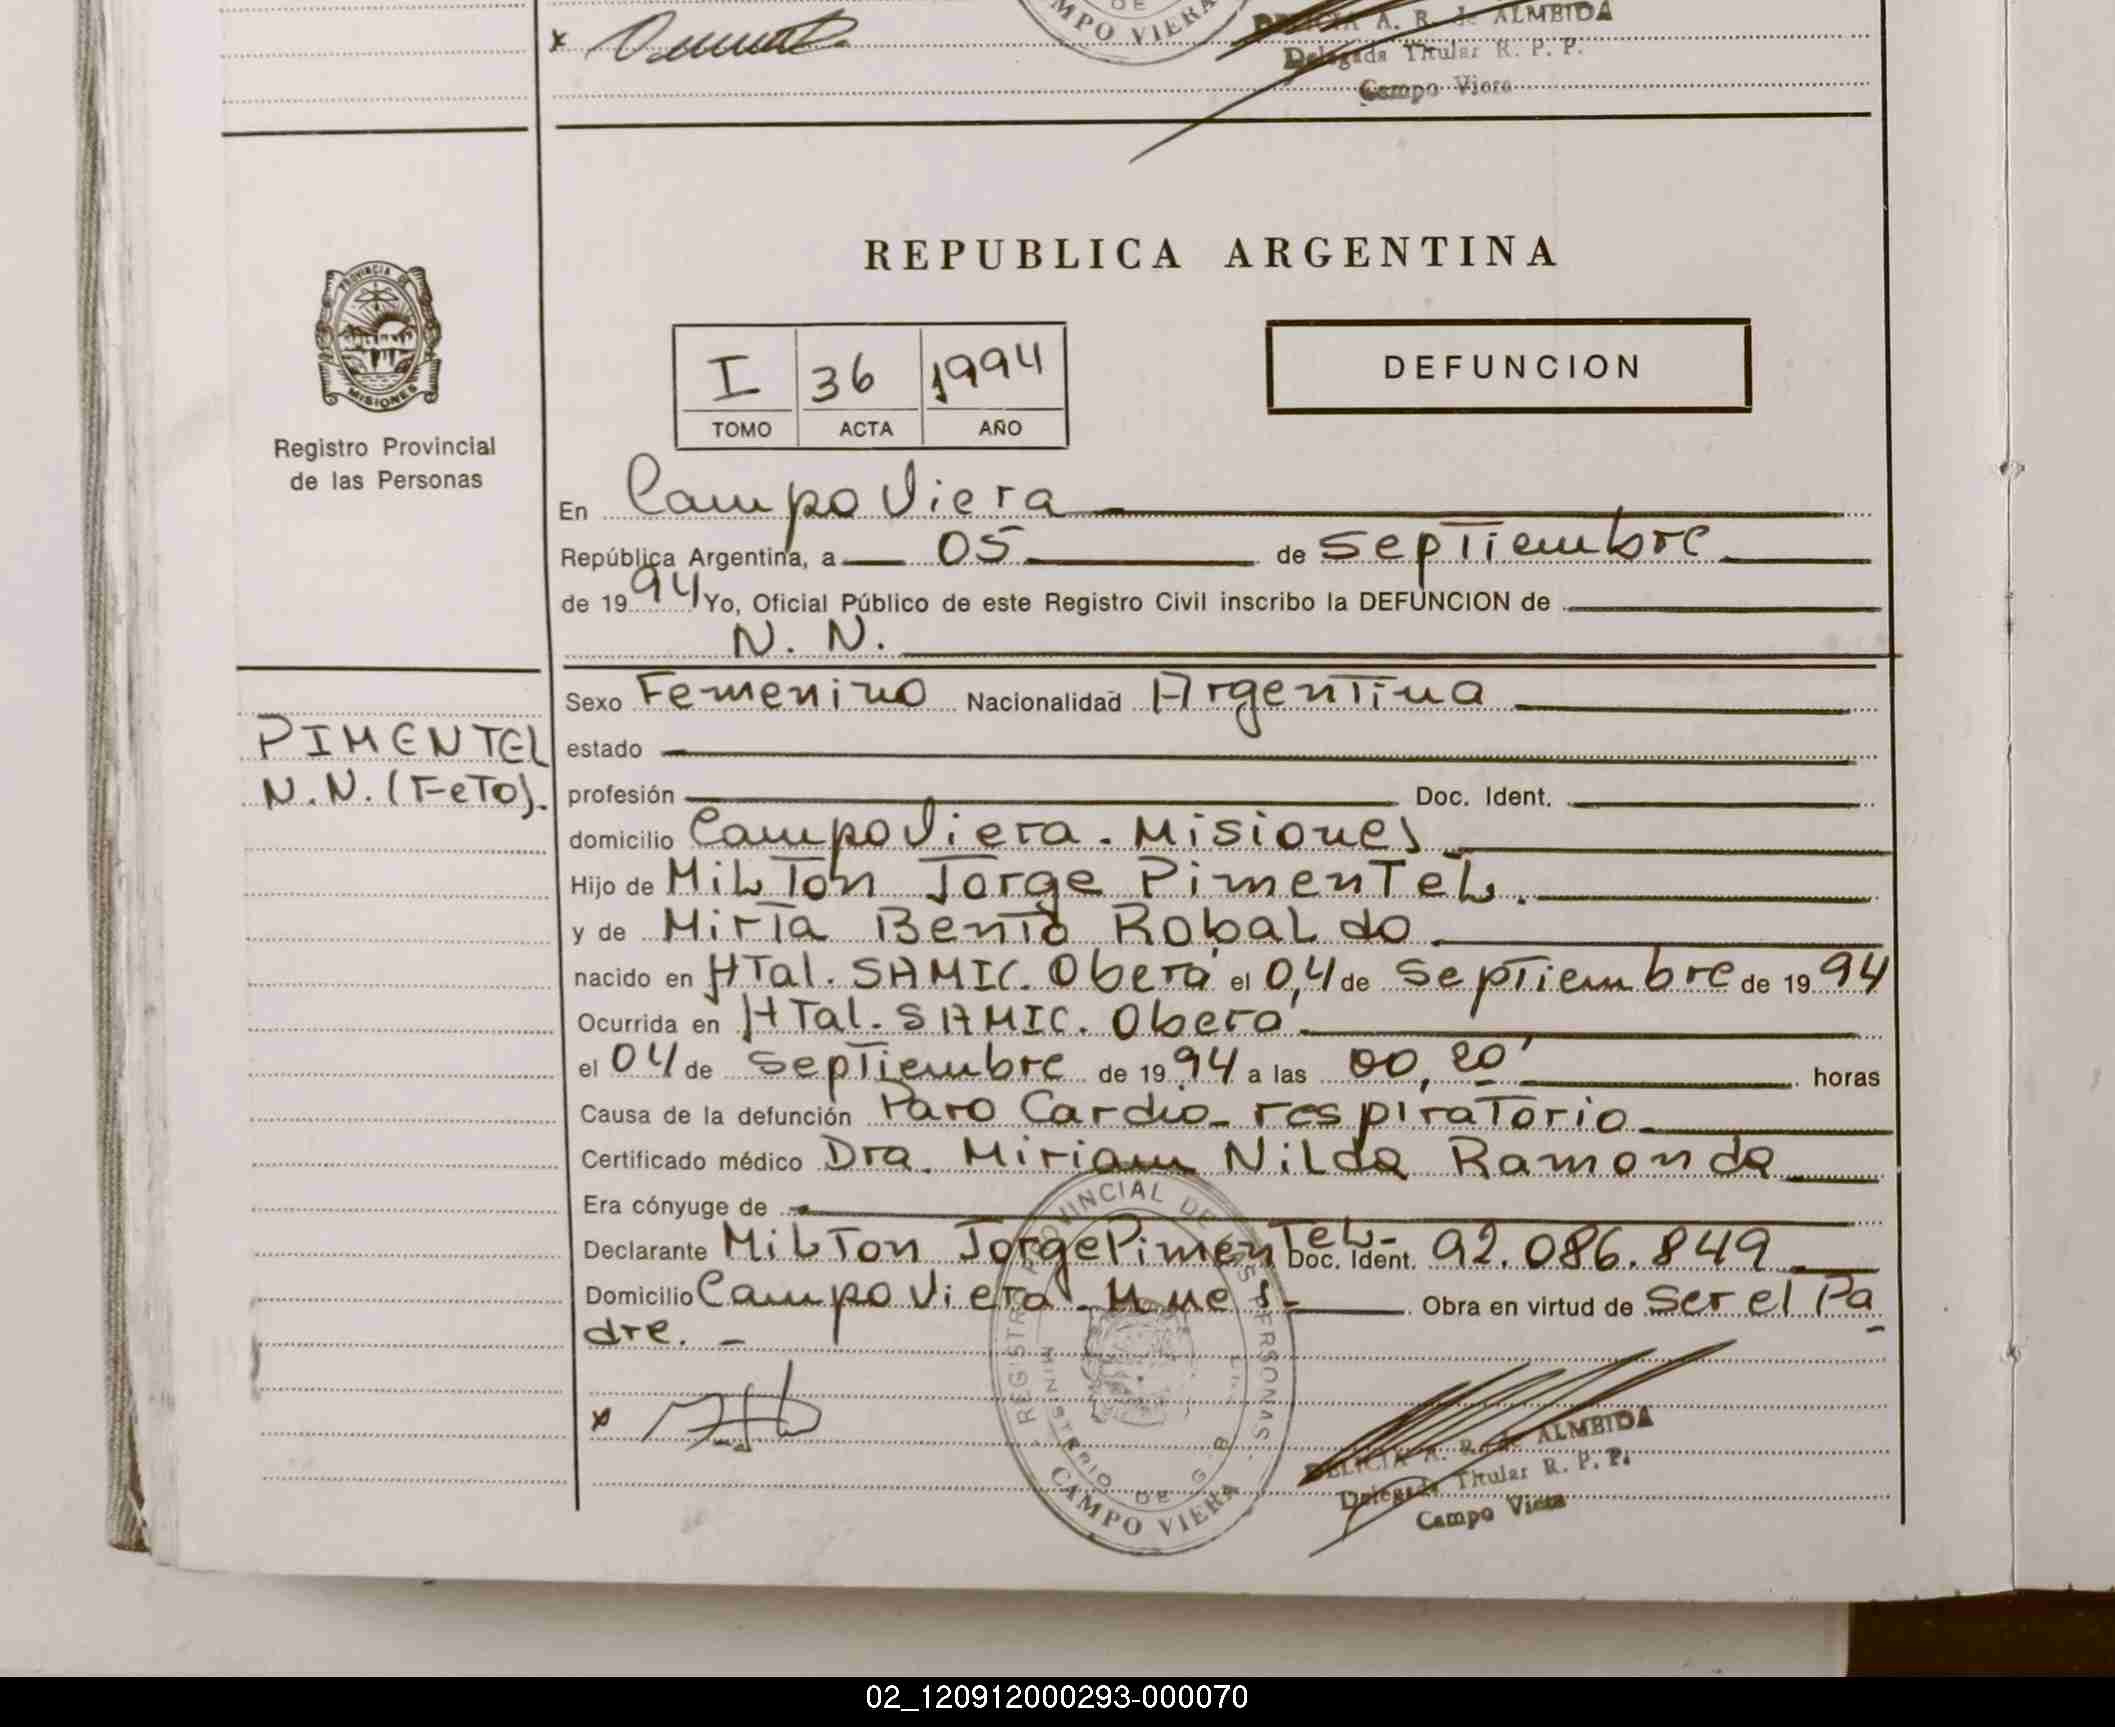 CAMPO VIERA
DELICIA A. R. de ALMEIDA
Delegada Titular R. P. P.
Campo Viera
REPUBLICA ARGENTINA
PROVINCIA DE
MISIONES
Registro Provincial
de las Personas
I 36 1994
TOMO ACTA AÑO
DEFUNCION
En Campo Viera
República Argentina, a 05 de Septiembre
de 1994 Yo, Oficial Público de este Registro Civil inscribo la DEFUNCION de
N. N.
PIMENTEL
N.N. (FeTo).
Sexo Femenino Nacionalidad Argentina
estado
profesión Doc. Ident.
domicilio Campo Viera. Misiones
Hijo de Milton Jorge Pimentel.
y de Mirta Bento Robaldo.
nacido en HTal. SAMIC. Oberá el 04 de Septiembre de 1994
Ocurrida en HTal. SAMIC. Oberá
el 04 de Septiembre de 1994 a las 00,20' horas
Causa de la defunción Paro Cardio-respiratorio
Certificado médico Dra. Miriam Nilda Ramonda
Era cónyuge de
Declarante Milton Jorge Pimentel- Doc. Ident. 92.086.849
Domicilio Campo Viera. Mnes- Obra en virtud de Ser el Pa
dre. -
REGISTRO PROVINCIAL DE LAS PERSONAS
MINISTERIO DE G.
CAMPO VIERA
x
DELICIA A. R. de ALMEIDA
Delegada Titular R. P. P.
Campo Viera
02_120912000293-000070